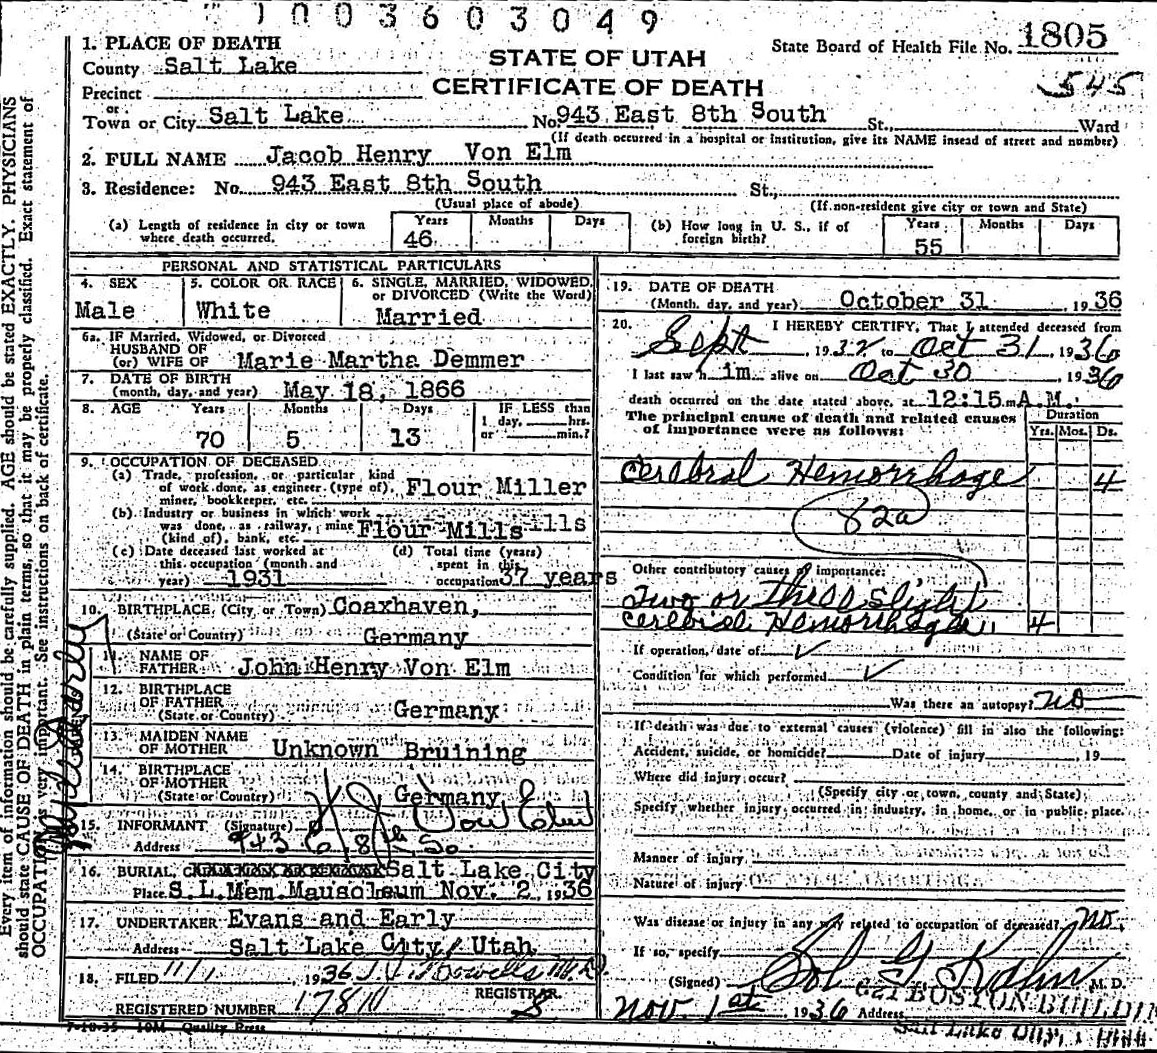 1003603049
1. PLACE OF DEATH
County Salt Lake
Precinct
or
Town or City Salt Lake
STATE OF UTAH
CERTIFICATE OF DEATH
State Board of Health File No. 1805
545
No. 943 East 8th South St., Ward
(If death occurred in a hospital or institution, give its NAME insead of street and number)
2. FULL NAME Jacob Henry Von Elm
3. Residence: No. 943 East 8th South St.,
(Usual place of abode) (If non-resident give city or town and State)
(a) Length of residence in city or town where death occurred. Years 46 Months Days
(b) How long in U. S., if of foreign birth? Years 55 Months Days
PERSONAL AND STATISTICAL PARTICULARS
4. SEX Male
5. COLOR OR RACE White
6. SINGLE, MARRIED, WIDOWED, or DIVORCED (Write the Word) Married
6a. IF Married, Widowed, or Divorced
HUSBAND OF
(or) WIFE OF Marie Martha Demmer
7. DATE OF BIRTH
(month, day, and year) May 18, 1866
8. AGE Years 70 Months 5 Days 13 IF LESS than 1 day, hrs. or min.?
9. OCCUPATION OF DECEASED
(a) Trade, profession, or particular kind of work done, as engineer (type of), miner, bookkeeper, etc. Flour Miller
(b) Industry or business in which work was done, as railway, mine (kind of), bank, etc. Flour Mills
(c) Date deceased last worked at this occupation (month and year) 1931
(d) Total time (years) spent in this occupation 37 years
10. BIRTHPLACE, (City or Town) Coaxhaven,
(State or Country) Germany
11. NAME OF FATHER John Henry Von Elm
12. BIRTHPLACE OF FATHER
(State or Country) Germany
13. MAIDEN NAME OF MOTHER Unknown Bruining
14. BIRTHPLACE OF MOTHER
(State or Country) Germany
15. INFORMANT (Signature) H J Von Elm
Address 943 E 8th So
16. BURIAL, Salt Lake City
Place S.L.Mem.Mausoleum Nov. 2, 1936
17. UNDERTAKER Evans and Early
Address Salt Lake City, Utah
18. FILED 11/1 1936
REGISTRAR
REGISTERED NUMBER
7-10-35 10M Quality Press
19. DATE OF DEATH
(Month, day, and year) October 31, 1936
20. I HEREBY CERTIFY, That I attended deceased from
Sept, 1932 to Oct 31, 1936
I last saw h im alive on Oct 30, 1936
death occurred on the date stated above, at 12:15 m A.M.
The principal cause of death and related causes of importance were as follows:
Duration
Yrs. Mos. Ds.
Cerebral Hemorrhage 4
82a
Other contributory causes of importance:
Two or three slight
cerebral Hemorrhages, 4
If operation, date of
Condition for which performed
Was there an autopsy? no
If death was due to external causes (violence) fill in also the following:
Accident, suicide, or homicide? Date of injury , 19
Where did injury occur?
(Specify city or town, county and State)
Specify whether injury occurred in industry, in home, or in public place.
Manner of injury
Nature of injury
Was disease or injury in any way related to occupation of deceased? no.
If so, specify
(Signed) Sol G. Kahn M. D.
Nov. 1st 1936 Address 621 BOSTON BUILDIN
Salt Lake City, Utah
Every item of information should be carefully supplied. AGE should be stated EXACTLY. PHYSICIANS
should state CAUSE OF DEATH in plain terms, so that it may be properly classified. Exact statement of
OCCUPATION very important. See instructions on back of certificate.